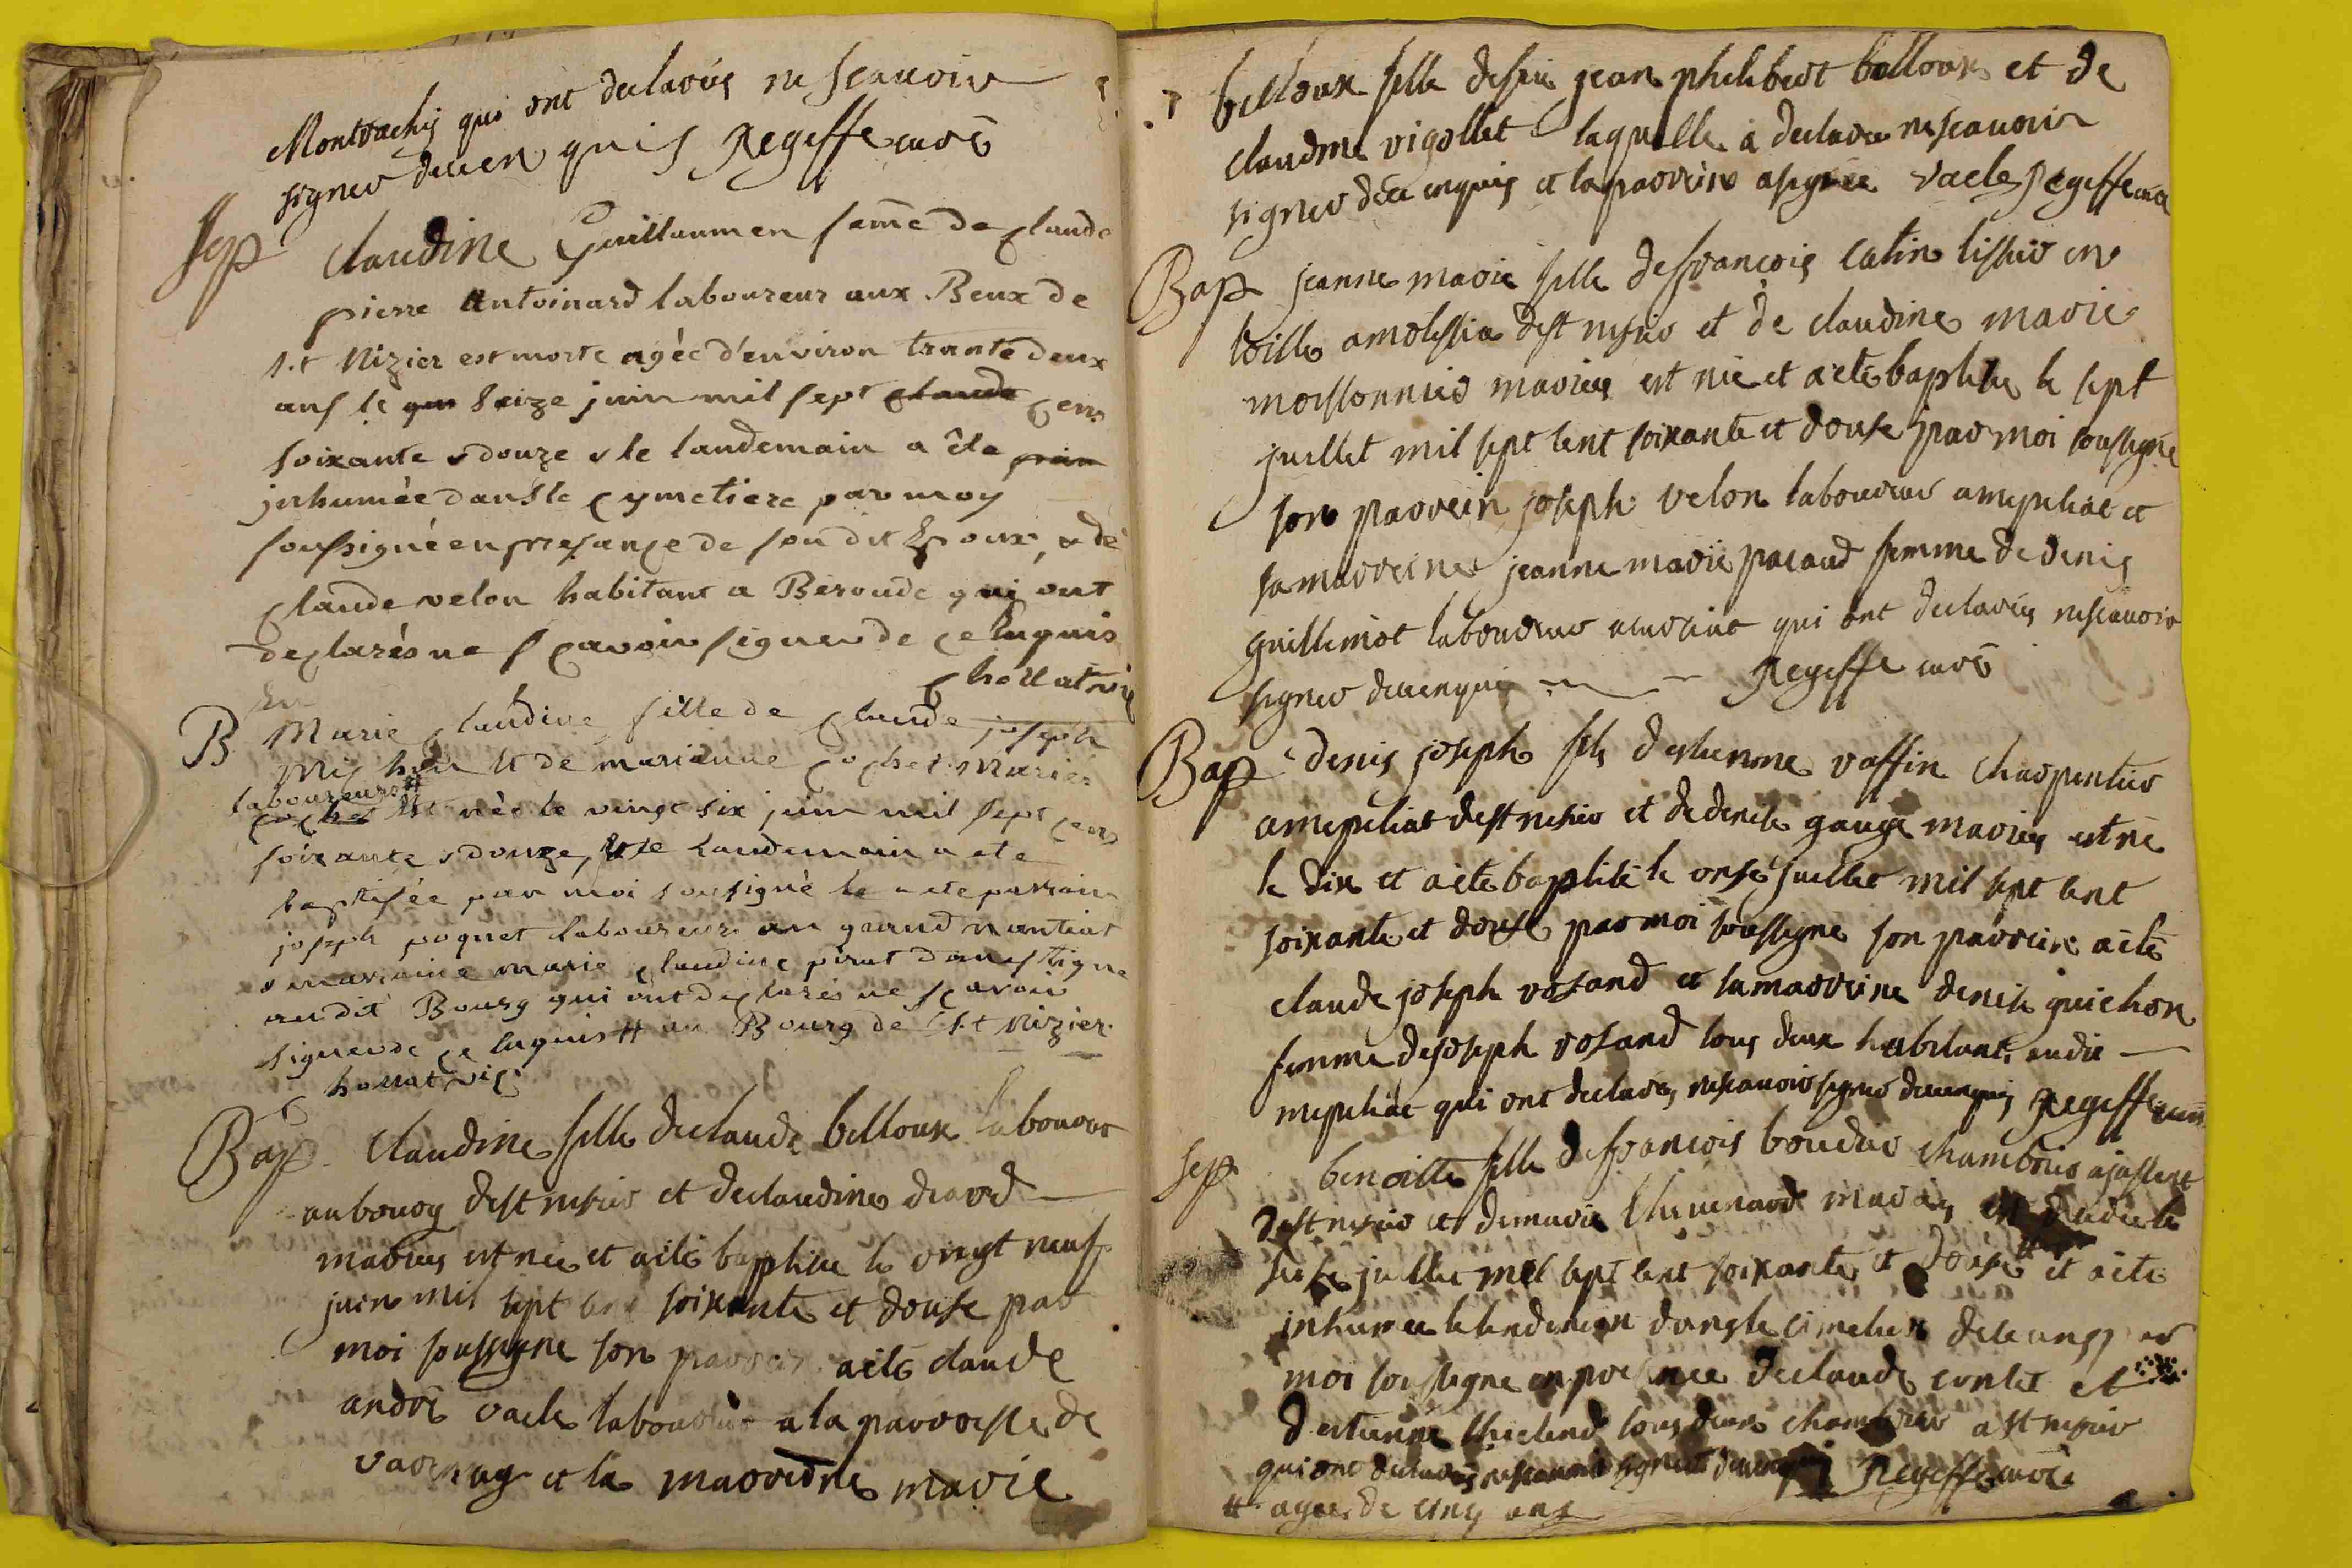 Montrachy qui ont declarés ne scauoir
signer de ce enquis Regeffe curé
Sep Claudine Guillaumen feme de Claude
pierre Antoinard laboureur aux Beux de
s.t Nizier est morte agée d'environ trante deux
ans le seize juin mil sept cens
soixante & douze & le landemain a éte
jnhumée dans le cymetiere par moy
soussigné en presançe de son dit Epoux, & de
Claude velon habitant a Béroude qui ont
declarés ne sçavoir signer de çe Enquis
Chollat vic
B Marie Claudine fille de Claude joseph
Michon et de marianne cochet Mariés
laboureurs # est née le vingt six juin mil sept cens
soixante & douze, & le landemain a ete
baptisée par moi soussigné le a ete parrain
joseph poguet laboureur au grand nantiat
& marraine marie Claudine pirat
au dit Bourg qui ont declarés ne sçavoir
signer de ce enquis # au Bourg de s.t Nizier.
Chollat vic
Bap. Claudine fille de claude belloux laboureur
au bourg de st nisier et de claudine drard
mariés est née et a été baptisee le vingt neuf
juin mil sept cent soixante et douse par
moi soussigne son parrein a été claude
andré vacle laboureur a la parroisse de
varenag et la marreine marie
belloux fille de feu jean philibert belloux et de
claudine vigollet laquelle a declaree ne scauoir
signer de ce enquis et la parreine a signée vacle Regeffe curé
Bap jeanne marie fille de francois catin tissier en
toille a molissia de st nisier et de claudine marie
moissonnier mariés est née et a eté baptisee le sept
juillet mil sept cent soixante et douse par moi soussigné
son parrein joseph velon laboureur a mepiliat et
sa marreine jeanne marie pacaud femme de denis
guillemot laboureur a curciat qui ont declarés ne scauoir
signer de ce enquis Regeffe curé
Bap denis joseph fils d'estienne vaffin charpentier
a mepiliat de st nisier et de denise gauge mariés est né
le dix et a eté baptisé le onse juillet mil sept cent
soixante et douse par moi soussigné son parrein a eté
claude joseph rosand et sa marreine denise guichon
femme de joseph rosand tous deux habitants audit
mepiliat qui ont declarés ne scauoir signer de ce enquis Regeffe curé
Sep benoitte fille de francois boudier chambrier a
de st nisier et de marie thevenard mariés est decedee le
seise juillet mil sept cent soixante et douse # et a eté
inhumee le lendemain dans le cimetiere de ceans par
moi soussigne en presence de claude contet et
d'estienne tous deux chambrier a st nisier
qui ont declarés ne scauoir signer de ce enquis Regeffe curé
# agée de cinq ans